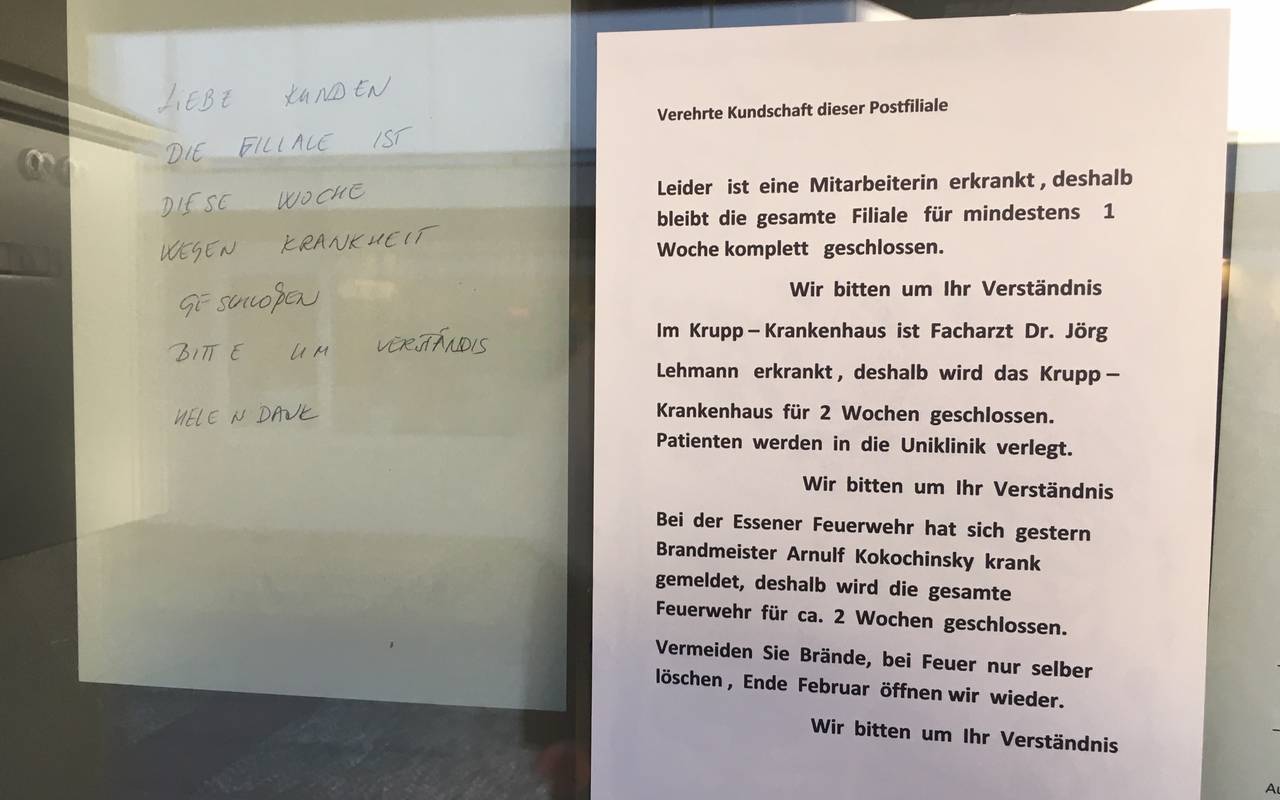 LIEBE KUNDEN
DIE FILIALE IST
DIESE WOCHE
WEGEN KRANKHEIT
GESCHLOßEN
BITTE UM VERSTÄNDIS
VIELEN DANK
Verehrte Kundschaft dieser Postfiliale
Leider ist eine Mitarbeiterin erkrankt , deshalb
bleibt die gesamte Filiale für mindestens 1
Woche komplett geschlossen.
Wir bitten um Ihr Verständnis
Im Krupp – Krankenhaus ist Facharzt Dr. Jörg
Lehmann erkrankt , deshalb wird das Krupp –
Krankenhaus für 2 Wochen geschlossen.
Patienten werden in die Uniklinik verlegt.
Wir bitten um Ihr Verständnis
Bei der Essener Feuerwehr hat sich gestern
Brandmeister Arnulf Kokochinsky krank
gemeldet, deshalb wird die gesamte
Feuerwehr für ca. 2 Wochen geschlossen.
Vermeiden Sie Brände, bei Feuer nur selber
löschen , Ende Februar öffnen wir wieder.
Wir bitten um Ihr Verständnis